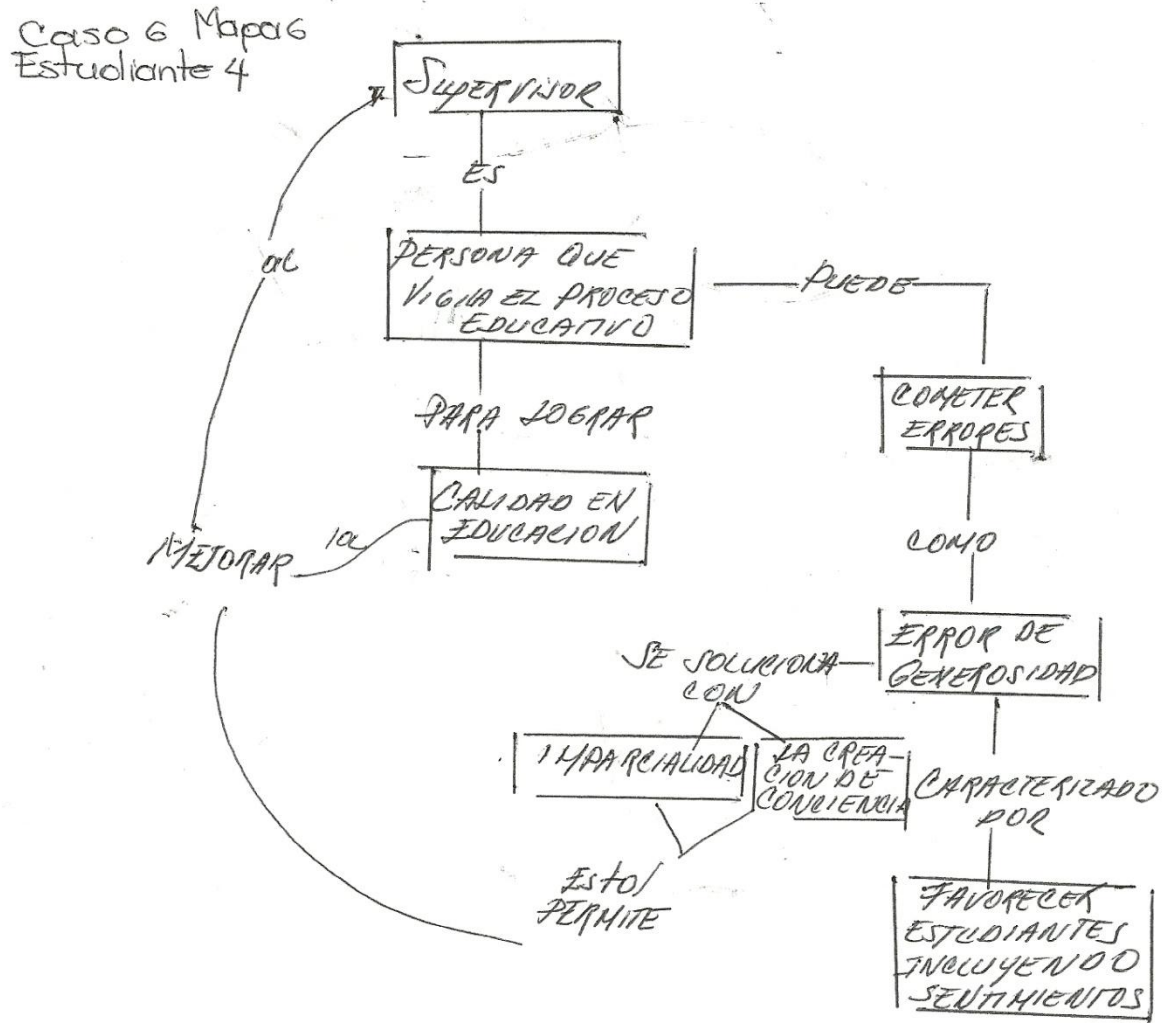 Caso 6 Mapa6
Estudiante 4
SUPERVISOR
ES
al
PERSONA QUE
VIGILA EL PROCESO
EDUCATIVO
PUEDE
PARA LOGRAR
COMETER
ERRORES
CALIDAD EN
EDUCACION
MEJORAR
la
COMO
ERROR DE
GENEROSIDAD
SE SOLUCIONA
CON
IMPARCIALIDAD
LA CREA-
CION DE
CONCIENCIA
CARACTERIZADO
POR
Esto/
PERMITE
FAVORECER
ESTUDIANTES
INCLUYENDO
SENTIMIENTOS